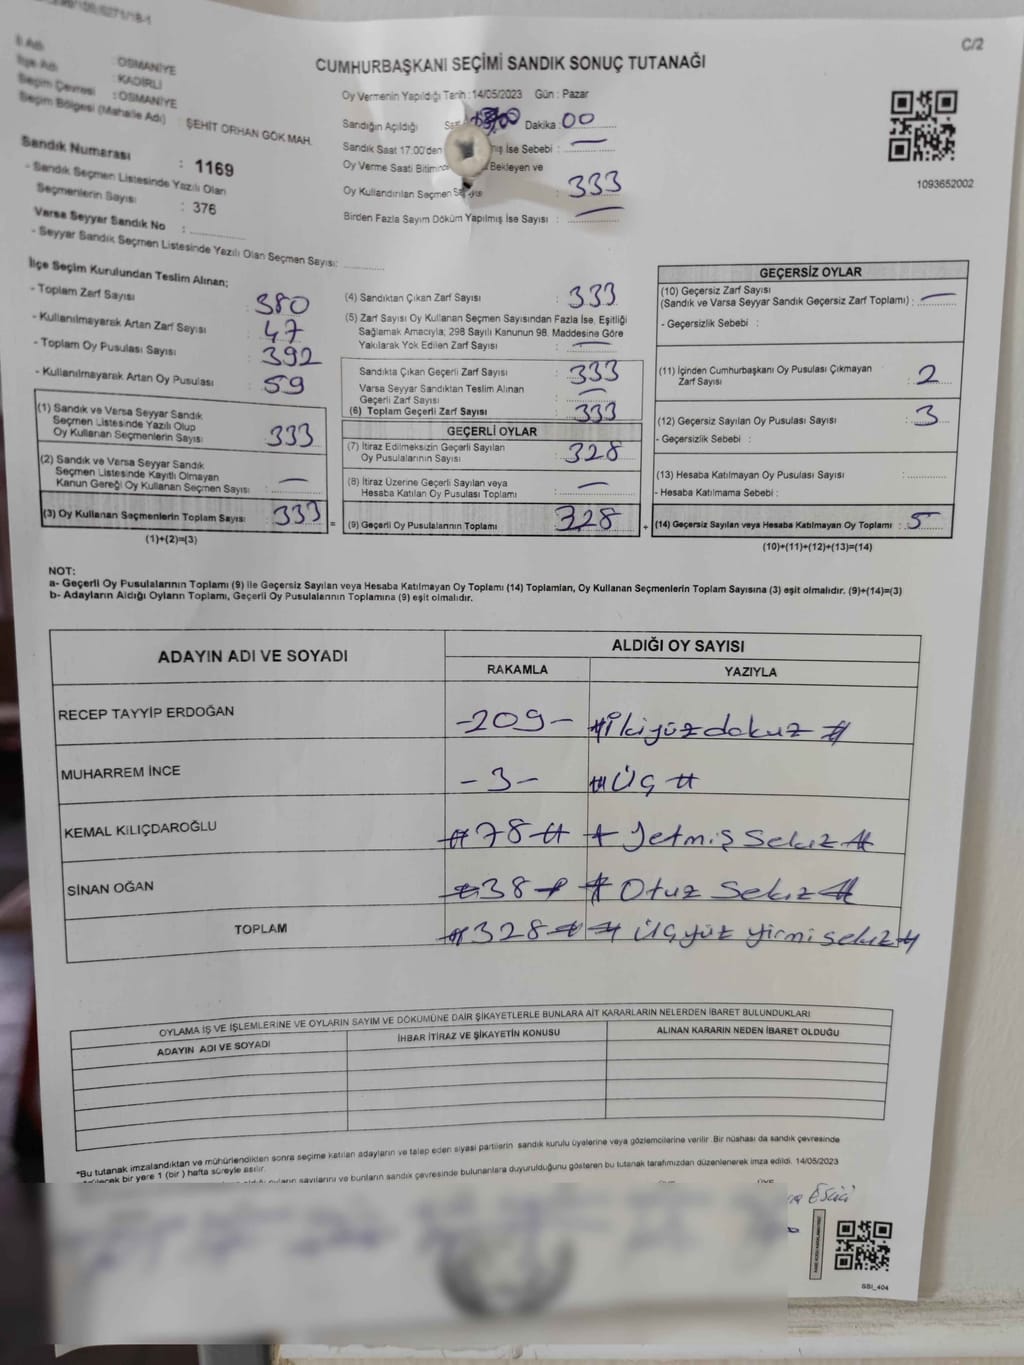 C/2
CUMHURBAŞKANI SEÇİMİ SANDIK SONUÇ TUTANAĞI
İl Adı : OSMANİYE
İlçe Adı : KADİRLİ
Seçim Çevresi : OSMANİYE
Seçim Bölgesi (Mahalle Adı) : ŞEHİT ORHAN GÖK MAH.
Sandık Numarası : 1169
- Sandık Seçmen Listesinde Yazılı Olan
Seçmenlerin Sayısı : 376
Varsa Seyyar Sandık No :
- Seyyar Sandık Seçmen Listesinde Yazılı Olan Seçmen Sayısı:
Oy Vermenin Yapıldığı Tarih :14/05/2023 Gün : Pazar
Sandığın Açıldığı Dakika :00
Sandık Saat 17.00'den İse Sebebi :
Oy Verme Saati Bekleyen ve
Oy Kullandırılan Seçmen : 333
Birden Fazla Sayım Döküm Yapılmış İse Sayısı :
1093652002
İlçe Seçim Kurulundan Teslim Alınan;
- Toplam Zarf Sayısı : 380
- Kullanılmayarak Artan Zarf Sayısı : 47
- Toplam Oy Pusulası Sayısı : 392
- Kullanılmayarak Artan Oy Pusulası : 59
(1) Sandık ve Varsa Seyyar Sandık
Seçmen Listesinde Yazılı Olup
Oy Kullanan Seçmenlerin Sayısı : 333
(2) Sandık ve Varsa Seyyar Sandık
Seçmen Listesinde Kayıtlı Olmayan
Kanun Gereği Oy Kullanan Seçmen Sayısı : —
(3) Oy Kullanan Seçmenlerin Toplam Sayısı : 333
(1)+(2)=(3)
=
(4) Sandıktan Çıkan Zarf Sayısı : 333
(5) Zarf Sayısı Oy Kullanan Seçmen Sayısından Fazla İse, Eşitliği
Sağlamak Amacıyla; 298 Sayılı Kanunun 98. Maddesine Göre
Yakılarak Yok Edilen Zarf Sayısı : —
Sandıkta Çıkan Geçerli Zarf Sayısı : 333
Varsa Seyyar Sandıktan Teslim Alınan
Geçerli Zarf Sayısı : —
(6) Toplam Geçerli Zarf Sayısı : 333
GEÇERLİ OYLAR
(7) İtiraz Edilmeksizin Geçerli Sayılan
Oy Pusulalarının Sayısı : 328
(8) İtiraz Üzerine Geçerli Sayılan veya
Hesaba Katılan Oy Pusulası Toplamı : —
(9) Geçerli Oy Pusulalarının Toplamı : 328
+
GEÇERSİZ OYLAR
(10) Geçersiz Zarf Sayısı
(Sandık ve Varsa Seyyar Sandık Geçersiz Zarf Toplamı) : —
- Geçersizlik Sebebi :
(11) İçinden Cumhurbaşkanı Oy Pusulası Çıkmayan
Zarf Sayısı : 2
(12) Geçersiz Sayılan Oy Pusulası Sayısı : 3
- Geçersizlik Sebebi :
(13) Hesaba Katılmayan Oy Pusulası Sayısı :
- Hesaba Katılmama Sebebi :
(14) Geçersiz Sayılan veya Hesaba Katılmayan Oy Toplamı : 5
(10)+(11)+(12)+(13)=(14)
NOT:
a- Geçerli Oy Pusulalarının Toplamı (9) ile Geçersiz Sayılan veya Hesaba Katılmayan Oy Toplamı (14) Toplamları, Oy Kullanan Seçmenlerin Toplam Sayısına (3) eşit olmalıdır. (9)+(14)=(3)
b- Adayların Aldığı Oyların Toplamı, Geçerli Oy Pusulalarının Toplamına (9) eşit olmalıdır.
ADAYIN ADI VE SOYADI ALDIĞI OY SAYISI
RAKAMLA YAZIYLA
RECEP TAYYİP ERDOĞAN -209- # ikiyüz dokuz #
MUHARREM İNCE -3- # Üç #
KEMAL KILIÇDAROĞLU # 78 # # Yetmiş sekiz #
SİNAN OĞAN # 38 # # Otuz sekiz #
TOPLAM # 328 # # Üçyüz yirmi sekiz #
OYLAMA İŞ VE İŞLEMLERİNE VE OYLARIN SAYIM VE DÖKÜMÜNE DAİR ŞİKAYETLERLE BUNLARA AİT KARARLARIN NELERDEN İBARET BULUNDUKLARI
ADAYIN ADI VE SOYADI İHBAR İTİRAZ VE ŞİKAYETİN KONUSU ALINAN KARARIN NEDEN İBARET OLDUĞU
*Bu tutanak imzalandıktan ve mühürlendikten sonra seçime katılan adayların ve talep eden siyasi partilerin sandık kurulu üyelerine veya gözlemcilerine verilir. Bir nüshası da sandık çevresinde
bir yere 1 (bir) hafta süreyle asılır.
sayılarını ve bunların sandık çevresinde bulunanlara duyurulduğunu gösteren bu tutanak tarafımızdan düzenlenerek imza edildi. 14/05/2023
SSI_404